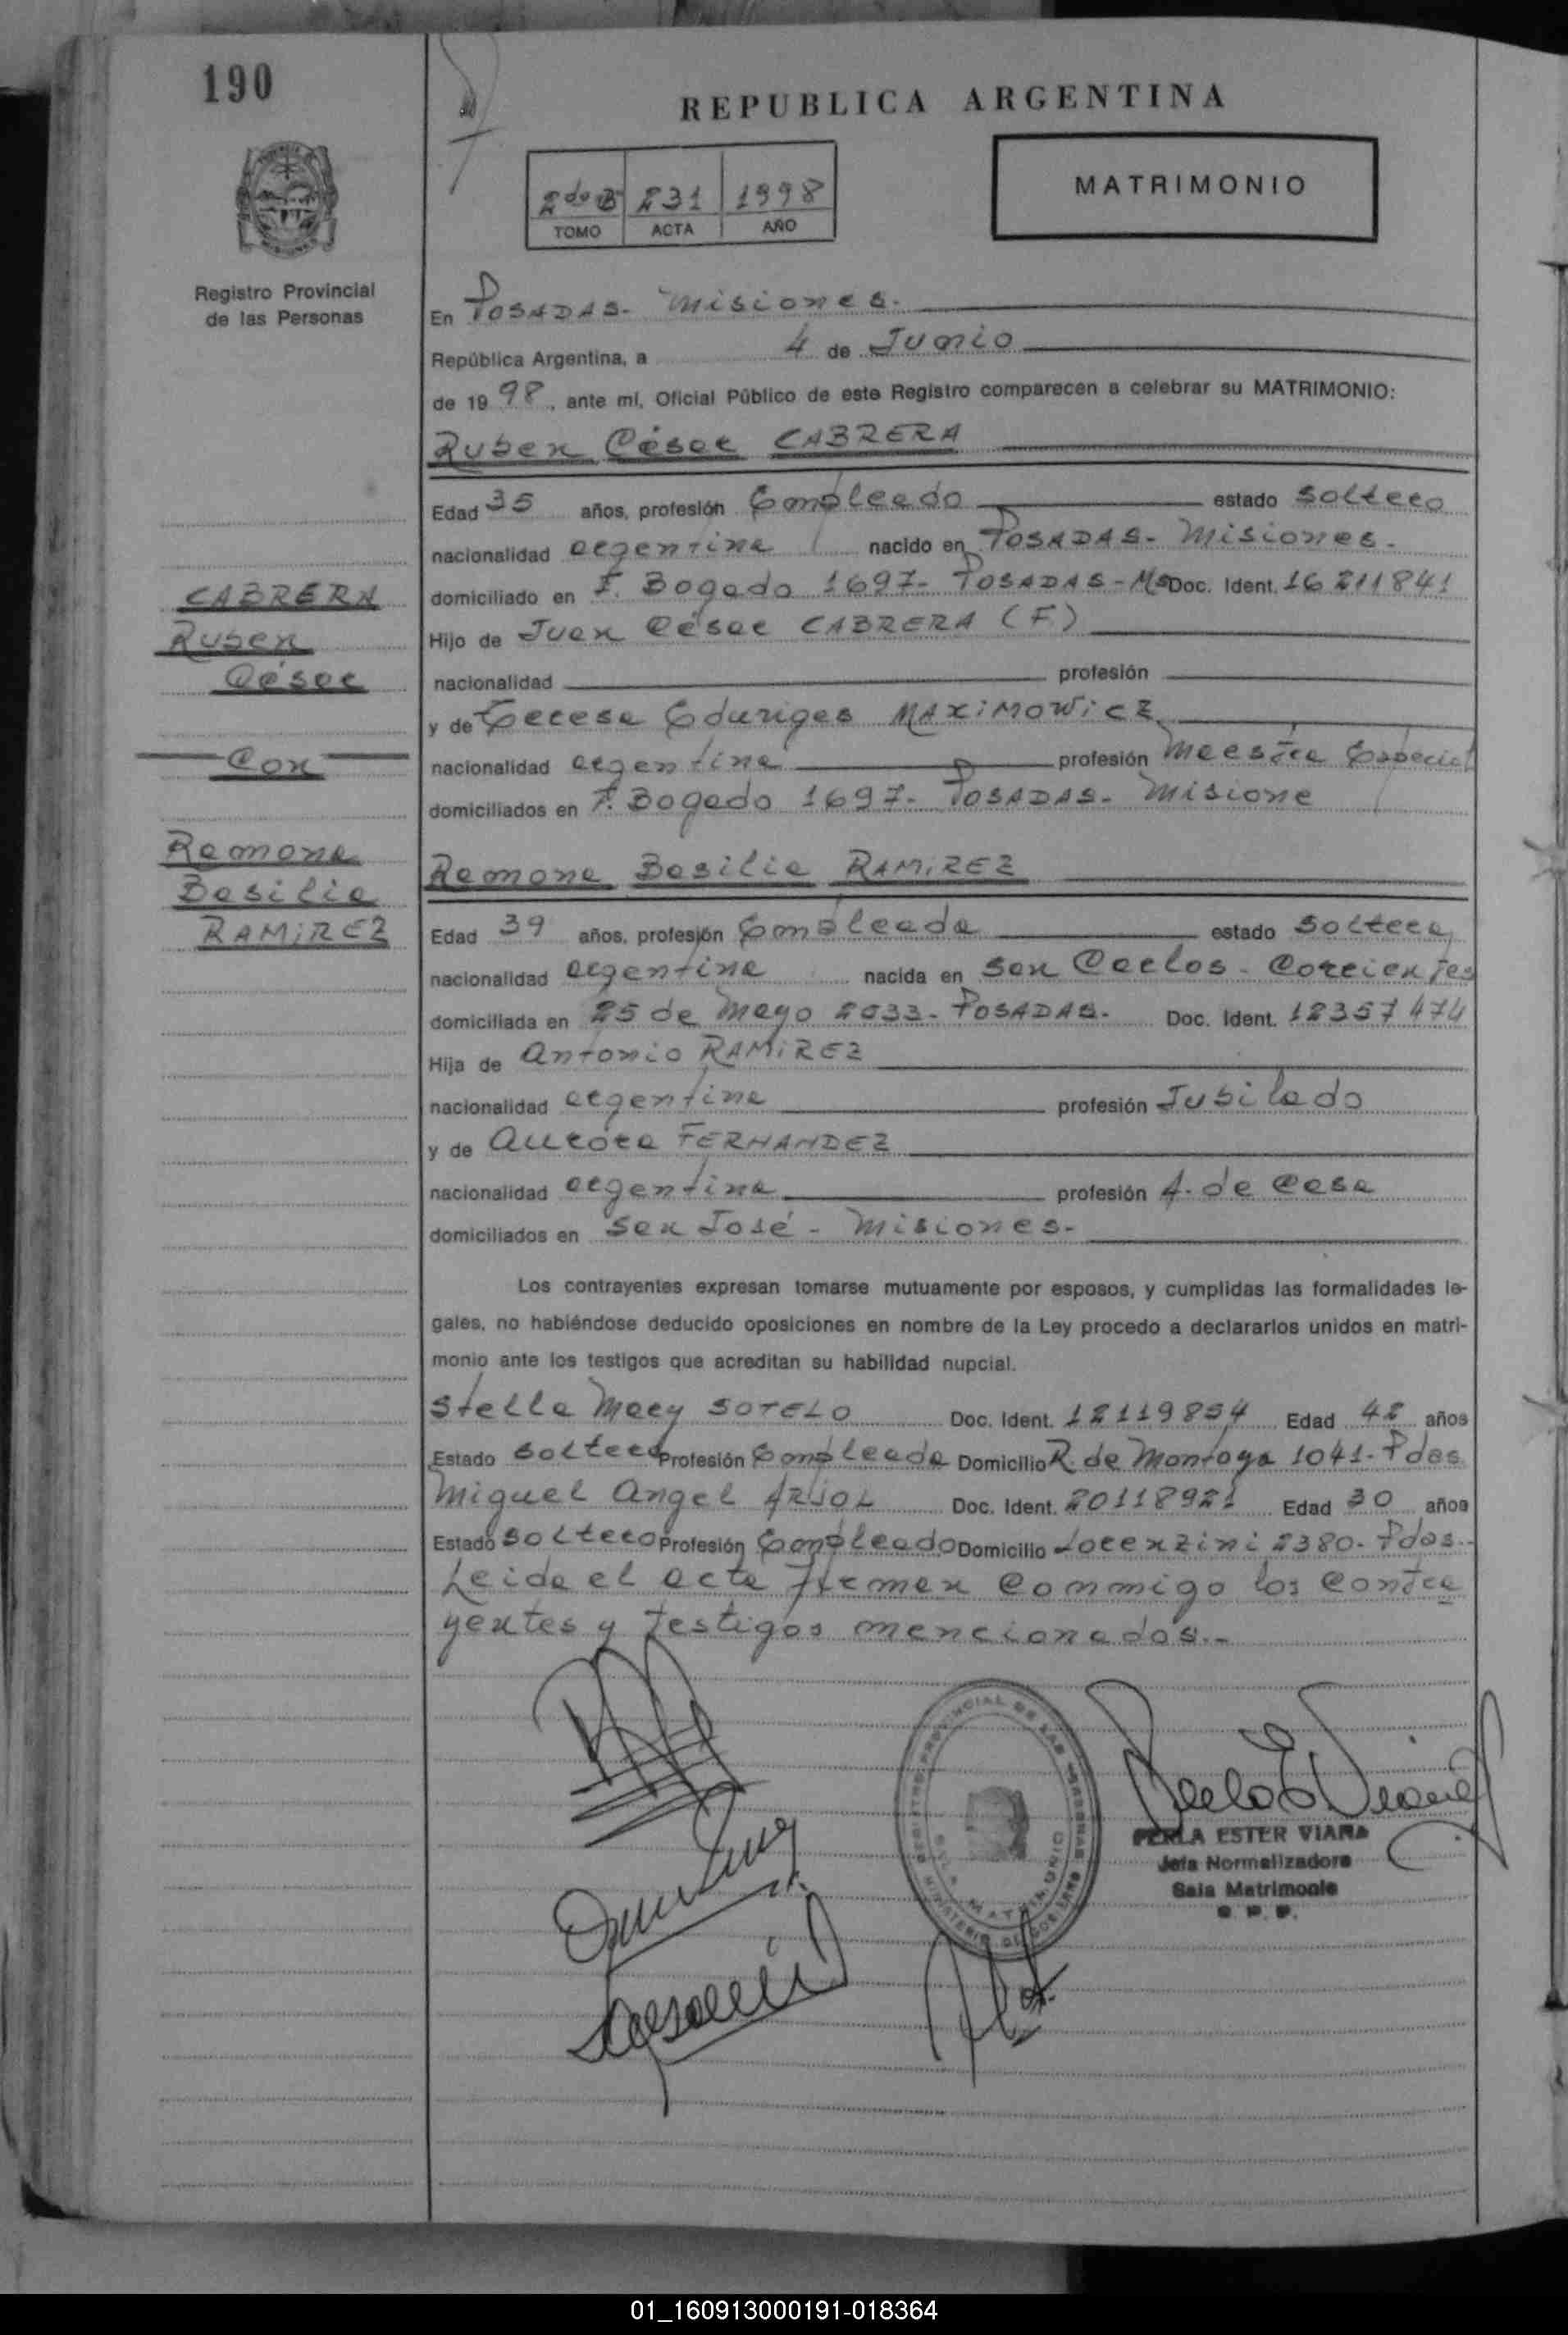 190
REPUBLICA ARGENTINA
2do B 231 1998
TOMO ACTA AÑO
MATRIMONIO
Registro Provincial
de las Personas
En POSADAS - Misiones.
República Argentina, a 4 de Junio
de 1998, ante mí, Oficial Público de este Registro comparecen a celebrar su MATRIMONIO:
Ruben César CABRERA
Edad 35 años, profesión Empleado estado soltero
nacionalidad argentina nacido en POSADAS - Misiones.
domiciliado en F. Bogado 1697 - POSADAS - Ms Doc. Ident. 16211841
Hijo de Juan César CABRERA (F)
nacionalidad profesión
y de Teresa Eduriges MAXIMOWICZ
nacionalidad argentina profesión Maestra Especial
domiciliados en F. Bogado 1697 - POSADAS - Misione
CABRERA
Ruben
César
Con
Ramona
Basilia
RAMIREZ
Ramona Basilia RAMIREZ
Edad 39 años, profesión Empleada estado soltera
nacionalidad argentina nacida en San Carlos - Corrientes
domiciliada en 25 de Mayo 2033 - POSADAS. Doc. Ident. 12357474
Hija de Antonio RAMIREZ
nacionalidad argentina profesión Jubilado
y de Aurora FERNANDEZ
nacionalidad argentina profesión A. de Casa
domiciliados en San José - Misiones -
Los contrayentes expresan tomarse mutuamente por esposos, y cumplidas las formalidades le-
gales, no habiéndose deducido oposiciones en nombre de la Ley procedo a declararlos unidos en matri-
monio ante los testigos que acreditan su habilidad nupcial.
Stella Mary SOTELO Doc. Ident. 12119854 Edad 42 años
Estado soltera Profesión Empleada Domicilio R. de Montoya 1041 - Pdas
Miguel Angel ARJOL Doc. Ident. 20118921 Edad 30 años
Estado soltero Profesión Empleado Domicilio Lorenzini 2380 - Pdas.
Leida el acta firman conmigo los contra
yentes y testigos mencionados.-
REGISTRO PROVINCIAL DE LAS PERSONAS
MINISTERIO DE GOBIERNO
SALA MATRIMONIO
PERLA ESTER VIANA
Jefa Normalizadora
Sala Matrimonio
R. P. P.
01_160913000191-018364